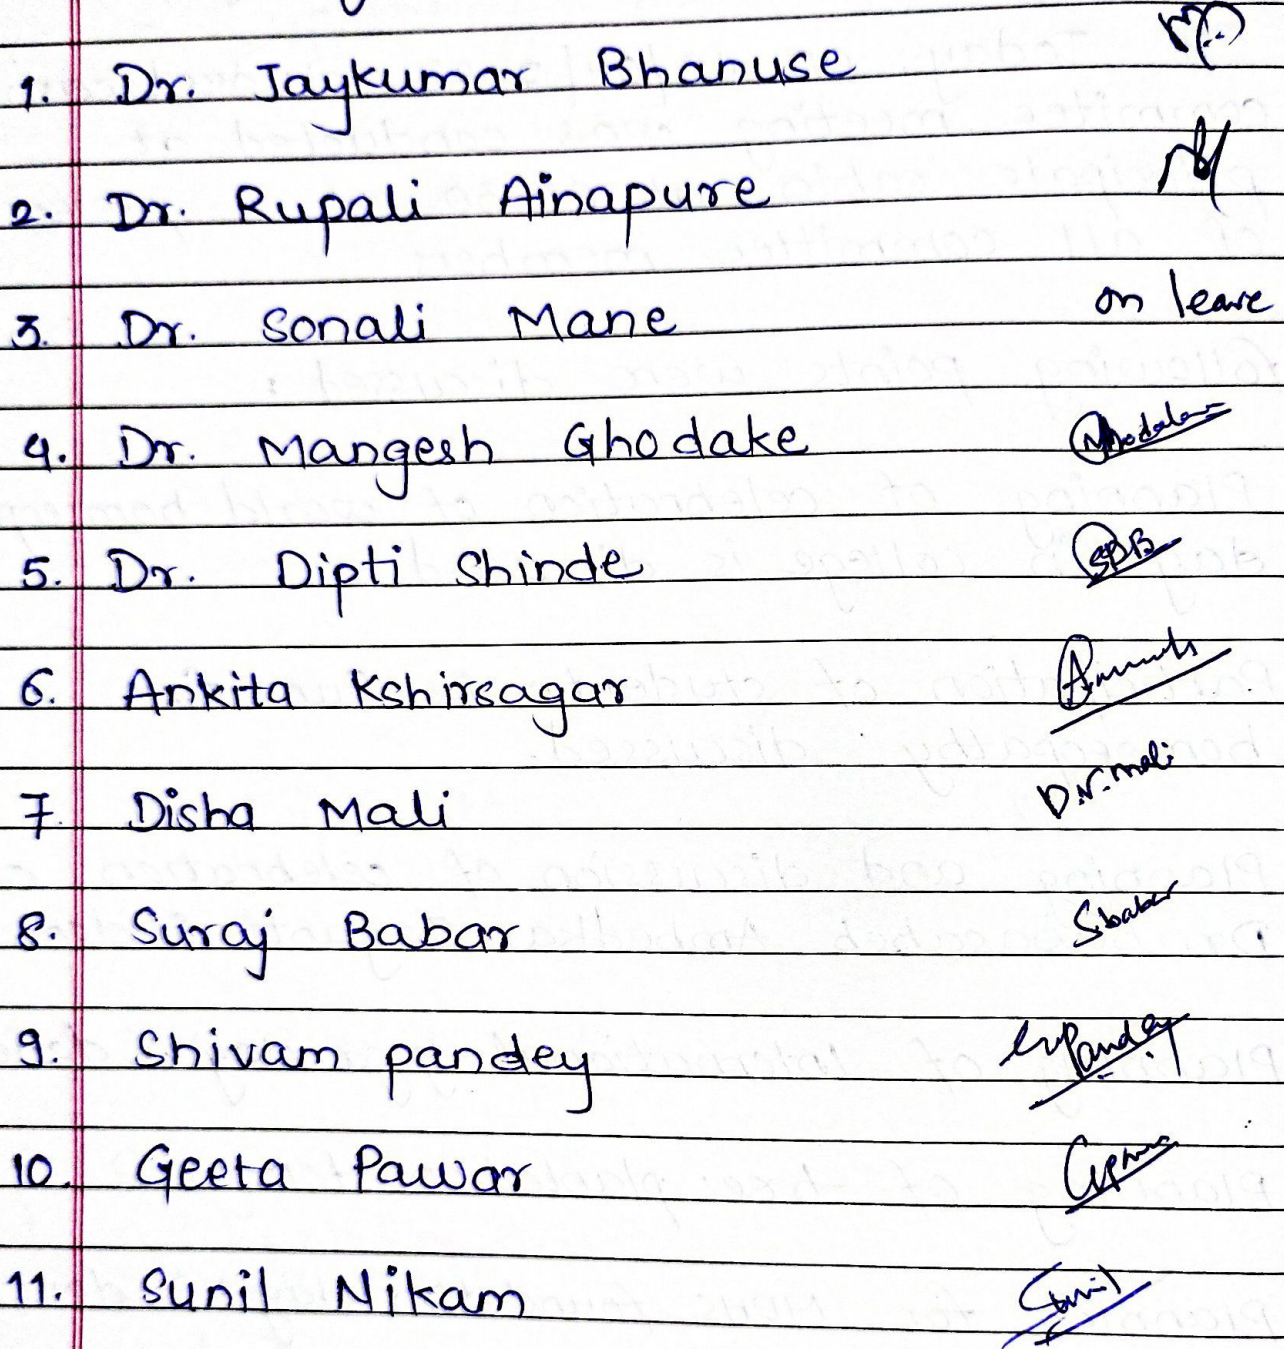 1. Dr. Jaykumar Bhanuse
2. Dr. Rupali Ainapure
3. Dr. Sonali Mane on leave
4. Dr. Mangesh Ghodake
5. Dr. Dipti Shinde
6. Ankita Kshirsagar
7. Disha Mali D.N.mali
8. Suraj Babar S.babar
9. Shivam pandey
10. Geeta Pawar
11. Sunil Nikam